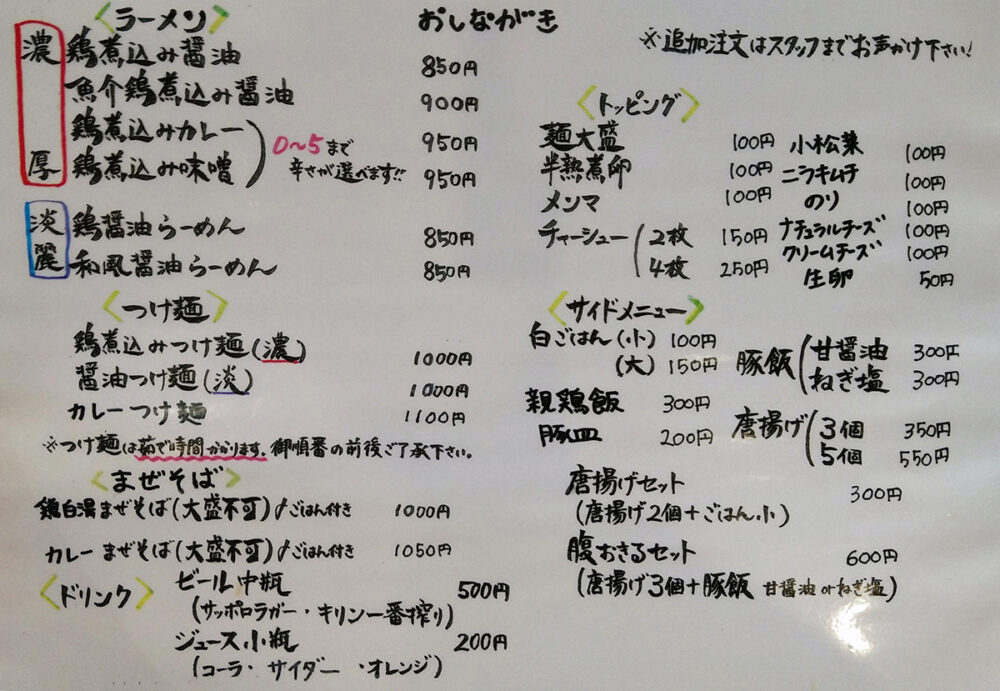 おしながき
※追加注文はスタッフまでお声かけ下さい!
〈ラーメン〉
濃厚
鶏煮込み醤油 850円
魚介鶏煮込み醤油 900円
鶏煮込みカレー 950円
鶏煮込み味噌 950円
0~5まで
辛さが選べます!!
淡麗
鶏醤油らーめん 850円
和風醤油らーめん 850円
〈つけ麺〉
鶏煮込みつけ麺(濃) 1000円
醤油つけ麺(淡) 1000円
カレーつけ麺 1100円
※つけ麺は茹で時間かかります。御順番の前後ご了承下さい。
〈まぜそば〉
鶏白湯まぜそば(大盛不可)♪ごはん付き 1000円
カレーまぜそば(大盛不可)♪ごはん付き 1050円
〈ドリンク〉
ビール中瓶 500円
(サッポロラガー・キリン一番搾り)
ジュース小瓶 200円
(コーラ・サイダー・オレンジ)
〈トッピング〉
麺大盛 100円
半熟煮卵 100円
メンマ 100円
チャーシュー(2枚 150円
4枚 250円
小松菜 100円
ニラキムチ 100円
のり 100円
ナチュラルチーズ 100円
クリームチーズ 100円
生卵 50円
〈サイドメニュー〉
白ごはん(小) 100円
(大) 150円
親鶏飯 300円
豚皿 200円
豚飯(甘醤油 300円
ねぎ塩 300円
唐揚げ(3個 350円
5個 550円
唐揚げセット 300円
(唐揚げ2個+ごはん小)
腹おきるセット 600円
(唐揚げ3個+豚飯 甘醤油orねぎ塩)